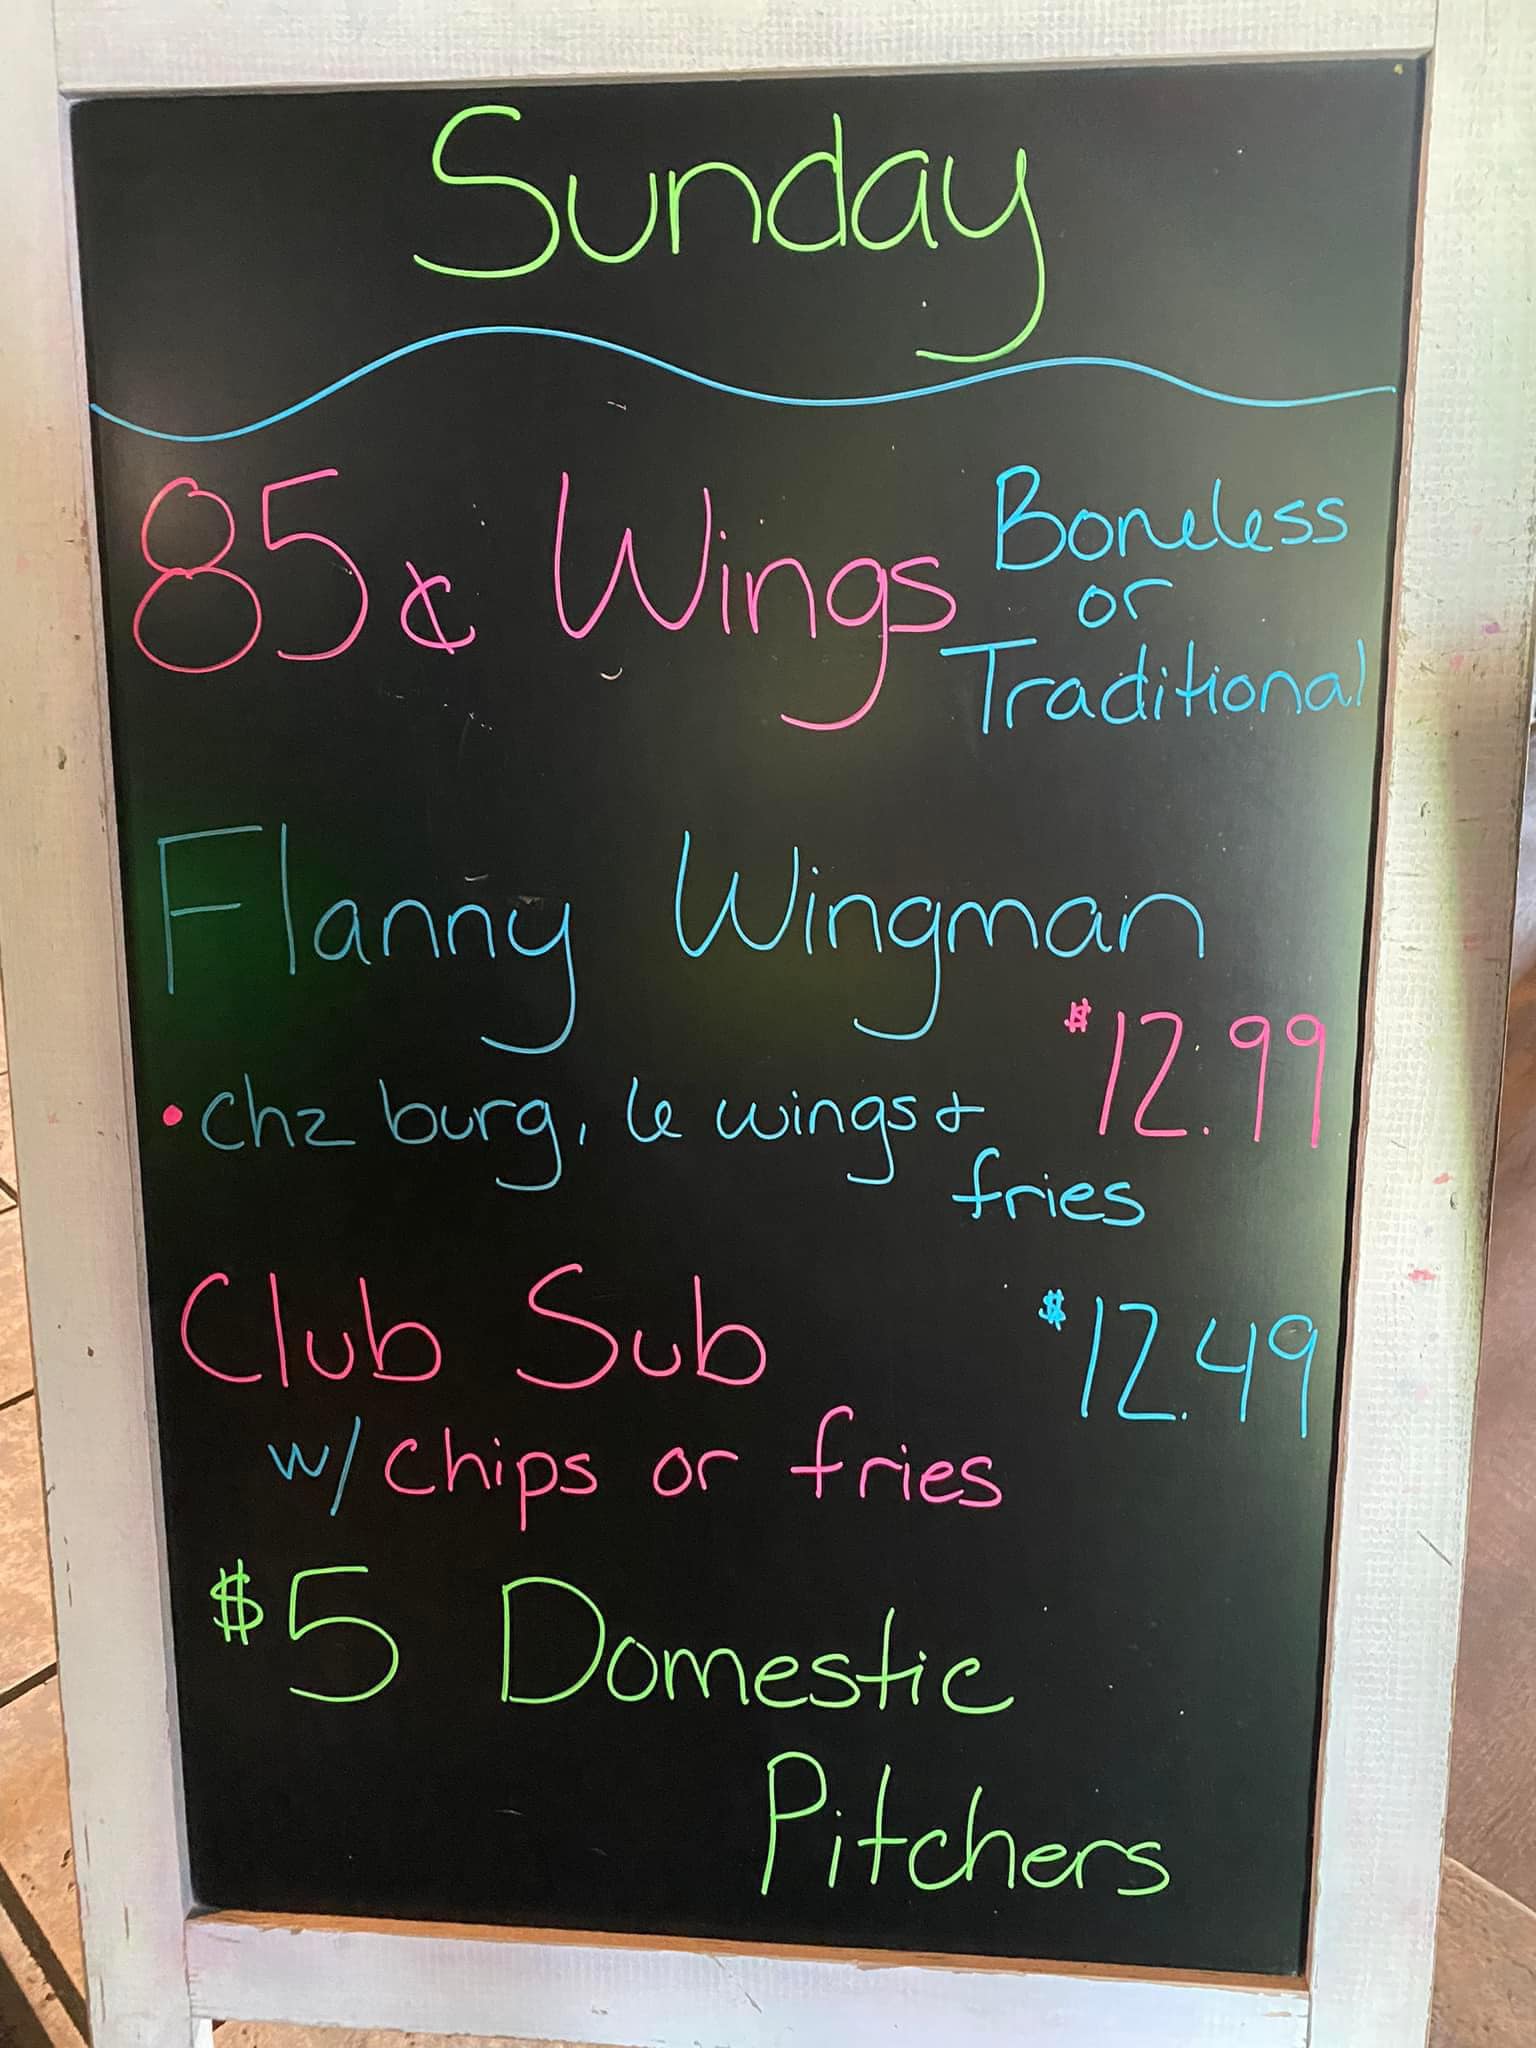 Sunday
85¢ Wings Boneless
or
Traditional
Flanny Wingman
$12.99
• Chz burg, 6 wings +
fries
Club Sub $12.49
w/ chips or fries
$5 Domestic
Pitchers